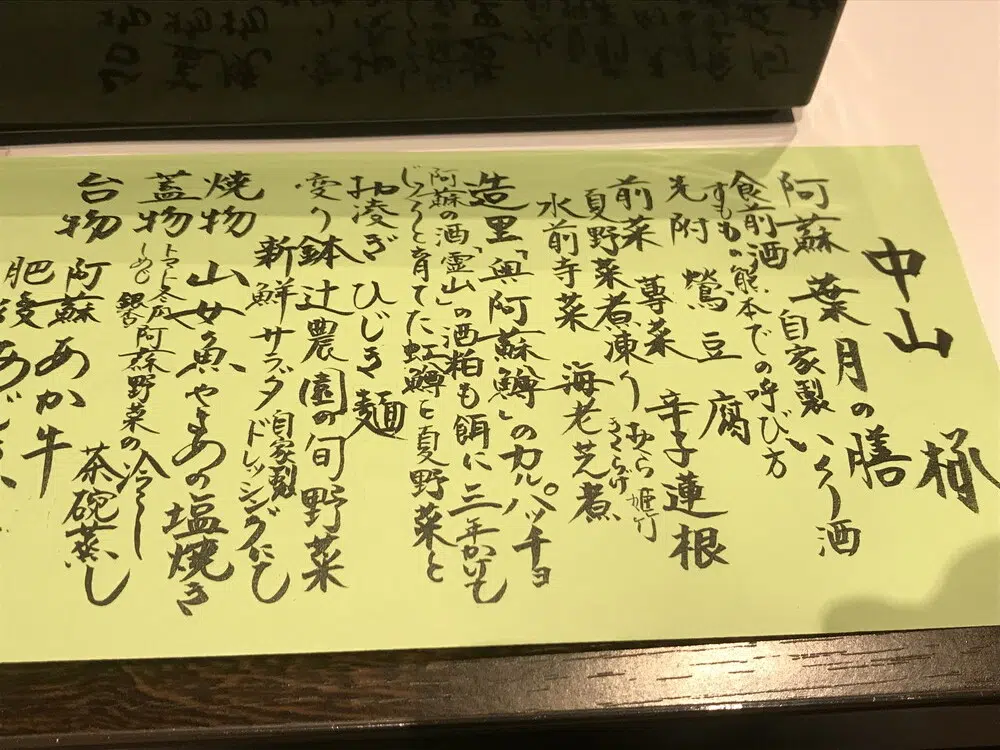 中山 様
阿蘇 葉月の膳
食前酒 自家製いくり酒
すももの熊本での呼び方
先附 鶯豆腐
前菜 蓴菜 辛子蓮根
夏野菜煮凍り おくら 姫竹
きくらげ
水前寺菜 海老芝煮
造里 「奥阿蘇鱒」のカルパッチョ
阿蘇の酒「霊山」の酒粕も餌に三年かけて
じっくりと育てた虹鱒と夏野菜と
お凌ぎ ひじき麺
変り鉢 辻農園の旬野菜
新鮮サラダ 自家製ドレッシングにて
焼物 山女魚やまめの塩焼き
蓋物 トマト 冬瓜 阿蘇野菜の冷し茶碗蒸し
しめじ 銀杏
台物 阿蘇あか牛
肥後あ